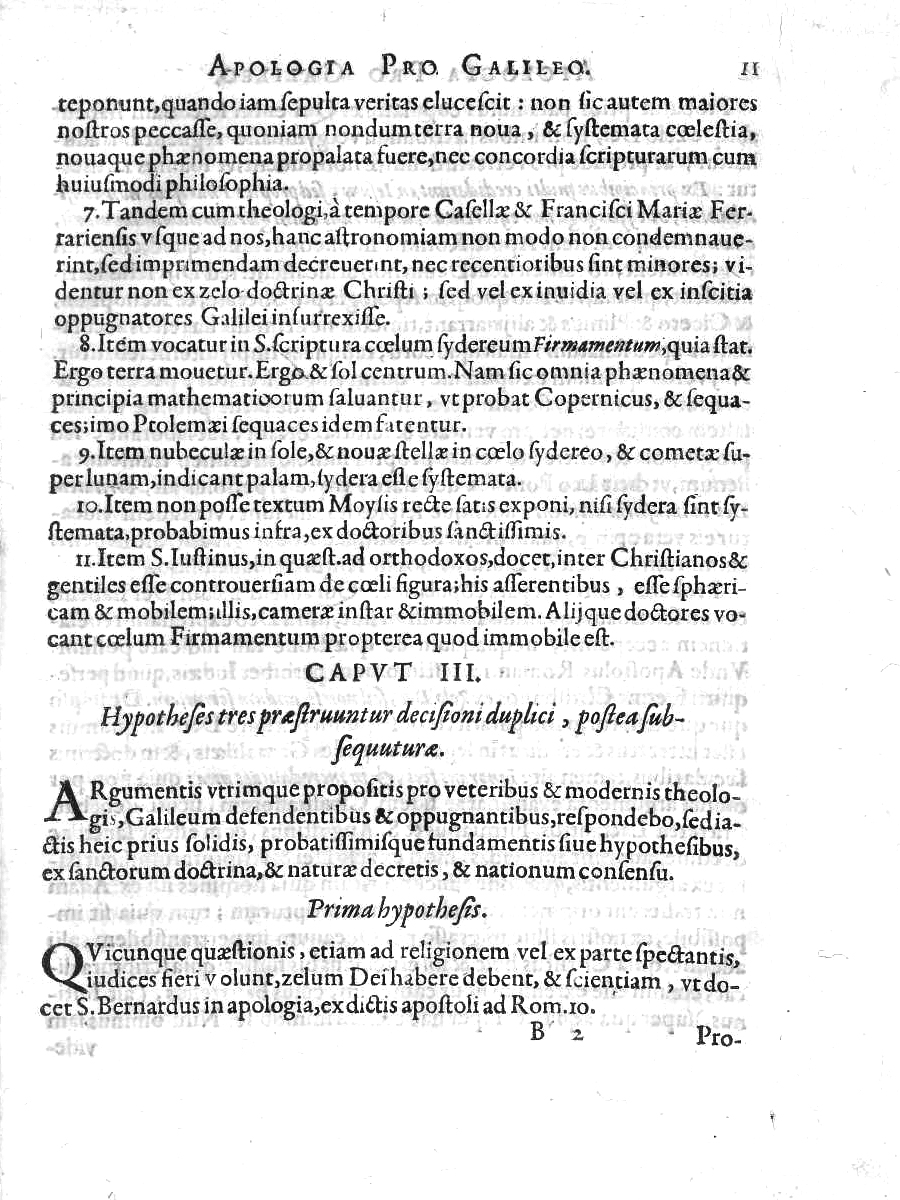 APOLOGIA PRO GALILEO. 11
teponunt, quando iam ſepulta veritas eluceſcit : non ſic autem maiores
noſtros peccaſſe, quoniam nondum terra noua , & ſyſtemata cœleſtia,
nouaque phænomena propalata fuere, nec concordia ſcripturarum cum
huiuſmodi philoſophia.
7. Tandem cum theologi, à tempore Caſellæ & Franciſci Mariæ Fer-
rarienſis vſque ad nos, hanc aſtronomiam non modo non condemnaue-
rint, ſed imprimendam decreuerint, nec recentioribus ſint minores; vi-
dentur non ex zelo doctrinæ Chriſti ; ſed vel ex inuidia vel ex inſcitia
oppugnatores Galilei inſurrexiſſe.
8. Item vocatur in S. ſcriptura cœlum ſydereum Firmamentum, quia ſtat.
Ergo terra mouetur. Ergo & ſol centrum. Nam ſic omnia phænomena &
principia mathematicorum ſaluantur , vt probat Copernicus, & ſequa-
ces; imo Ptolemæi ſequaces idem fatentur.
9. Item nubeculæ in ſole, & nouæ ſtellæ in cœlo ſydereo, & cometæ ſu-
per lunam, indicant palam, ſydera eſſe ſyſtemata.
10. Item non poſſe textum Moyſis recte ſatis exponi, niſi ſydera ſint ſy-
ſtemata, probabimus infra, ex doctoribus ſanctiſſimis.
11. Item S. Iuſtinus, in quæſt. ad orthodoxos, docet, inter Chriſtianos &
gentiles eſſe controuerſiam de cœli figura; his aſſerentibus , eſſe ſphæri-
cam & mobilem; illis, cameræ inſtar & immobilem. Alijque doctores vo-
cant cœlum Firmamentum propterea quod immobile eſt.
CAPVT III.
Hypotheſes tres præſtruuntur deciſioni duplici , poſtea ſub-
ſequuturæ.
ARgumentis vtrimque propoſitis pro veteribus & modernis theolo-
gis, Galileum defendentibus & oppugnantibus, reſpondebo, ſed ia-
ctis heic prius ſolidis, probatiſſimiſque fundamentis ſiue hypotheſibus,
ex ſanctorum doctrina, & naturæ decretis, & nationum conſenſu.
Prima hypotheſis.
QVicunque quæſtionis , etiam ad religionem vel ex parte ſpectantis,
iudices fieri volunt, zelum Dei habere debent, & ſcientiam , vt do-
cet S. Bernardus in apologia, ex dictis apoſtoli ad Rom. 10.
B 2 Pro-